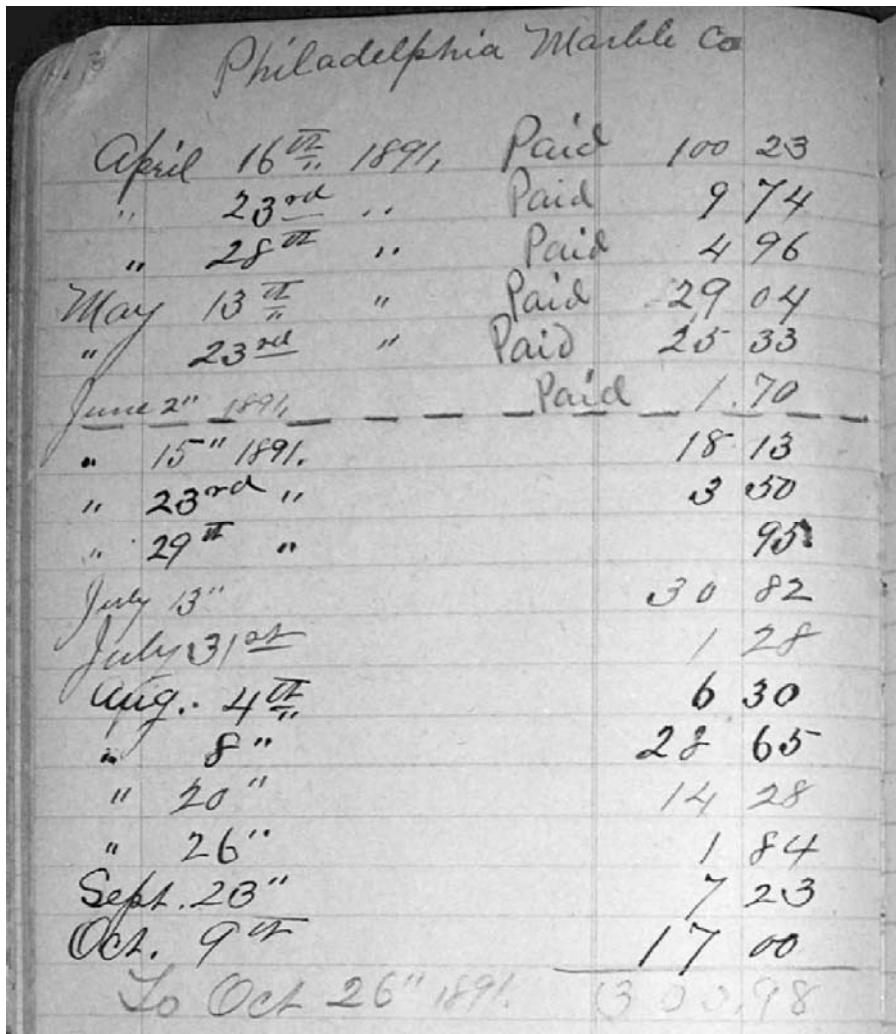 Philadelphia Marble Co
April 16th 1891, Paid 100 23
" 23rd " Paid 9 74
" 28th " Paid 4 96
May 13th " Paid 29 04
" 23rd " Paid 25 33
June 2" 1891, Paid 1.70
" 15" 1891. 18 13
" 23rd " 3 50
" 29th " 95
July 13" 30 82
July 31st 1 28
Aug. 4th 6 30
" 8" 28 65
" 20" 14 28
" 26" 1 84
Sept. 23" 7 23
Oct. 9th 17 00
To Oct 26" 1891. 300.98